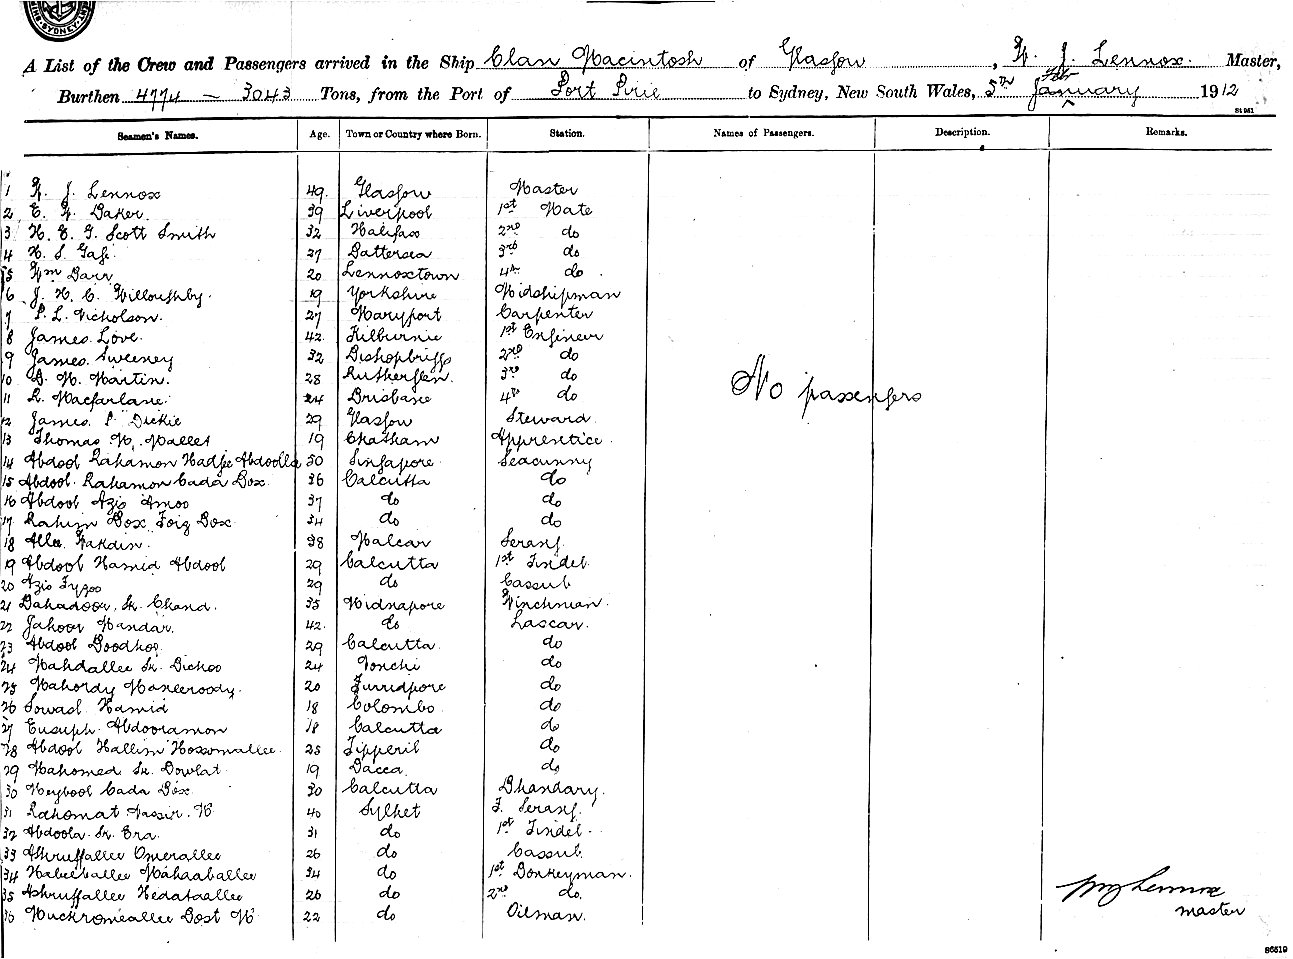 SYDNEY
A List of the Crew and Passengers arrived in the Ship Clan Macintosh of Glasgow, W. J. Lennox. Master,
Burthen 4774 — 3043 Tons, from the Port of Port Pirie to Sydney, New South Wales, 5TH January Feb 1912
St 951
Seamen's Names. Age. Town or Country where Born. Station. Names of Passengers. Description. Remarks.
1 W. J. Lennox 49. Glasgow Master
2 E. W. Baker. 39 Liverpool 1st Mate
3 H. E. G. Scott Smith 32 Halifax 2nd do
4 H. S. 27 Battersea 3rd do
5 Wm Barr 20 Lennoxtown 4th do.
6 J. H. C. Willoughby. 19 Yorkshire Midshipman
7 P. L. Nicholson. 27 Maryport Carpenter
8 James. Love. 42. Kilburnie 1st Engineer
9 James. Sweeney 32 Bishopbriggs 2nd do
10 D. M. Martin. 28 Rutherglen. 3rd do
11 R. Macfarlane. 24 Brisbane 4th do
12 James. P. Dickie 29 Glasgow Steward.
13 Thomas W. Mallet 19 Chatham Apprentice.
14 Abdool Rahamon Hadje Abdoolla 30 Singapore. Seacunny
15 Abdool. Rahamon Cada Box. 36 Calcutta do
16 Abdool Azis Amoo 37 do do
17 Rahim Box Foiz Box 34 do do
18 Alla. Wakdin. 38 Malear Serang.
19 Abdool Hamid Abdool 29 Calcutta 1st Tindel.
20 Azis 29 do Cassub
21 Bahadoor. Sk. Chand. 35 Midnapore Winchman.
22 Jahoor Mandar. 42. do Lascar.
23 Abdool Boodhoo. 29 Calcutta. do
24 Mahdallee Sk. Bickoo 24 do
25 Mahordy Maneeroody. 20 Furridpore do
26 Sowad Hamid 18 Colombo. do
27 Eusuph. Abdooramon 18 Calcutta do
28 Abdool Hallim Hossomallee. 25 Tipperil do
29 Mahomed Sk. Dowlat. 19 Dacca. do
30 Cada Box. 30 Calcutta Bhandary.
31 Rahomat Nassir. M 40 Sylhet F. Serang.
32 Abdoola. Sk. Era. 31 do 1st Tindel.
33 Ashruffallee Omerallee 26 do Cassub.
34 Habeeballee Mahaaballee 34 do 1st Donkeyman.
35 Ashruffallee Hedataallee 26 do 2nd do.
36 Muckromeallee Dost M. 22 do Oilman.
No passengers
W J Lennox
master
86519